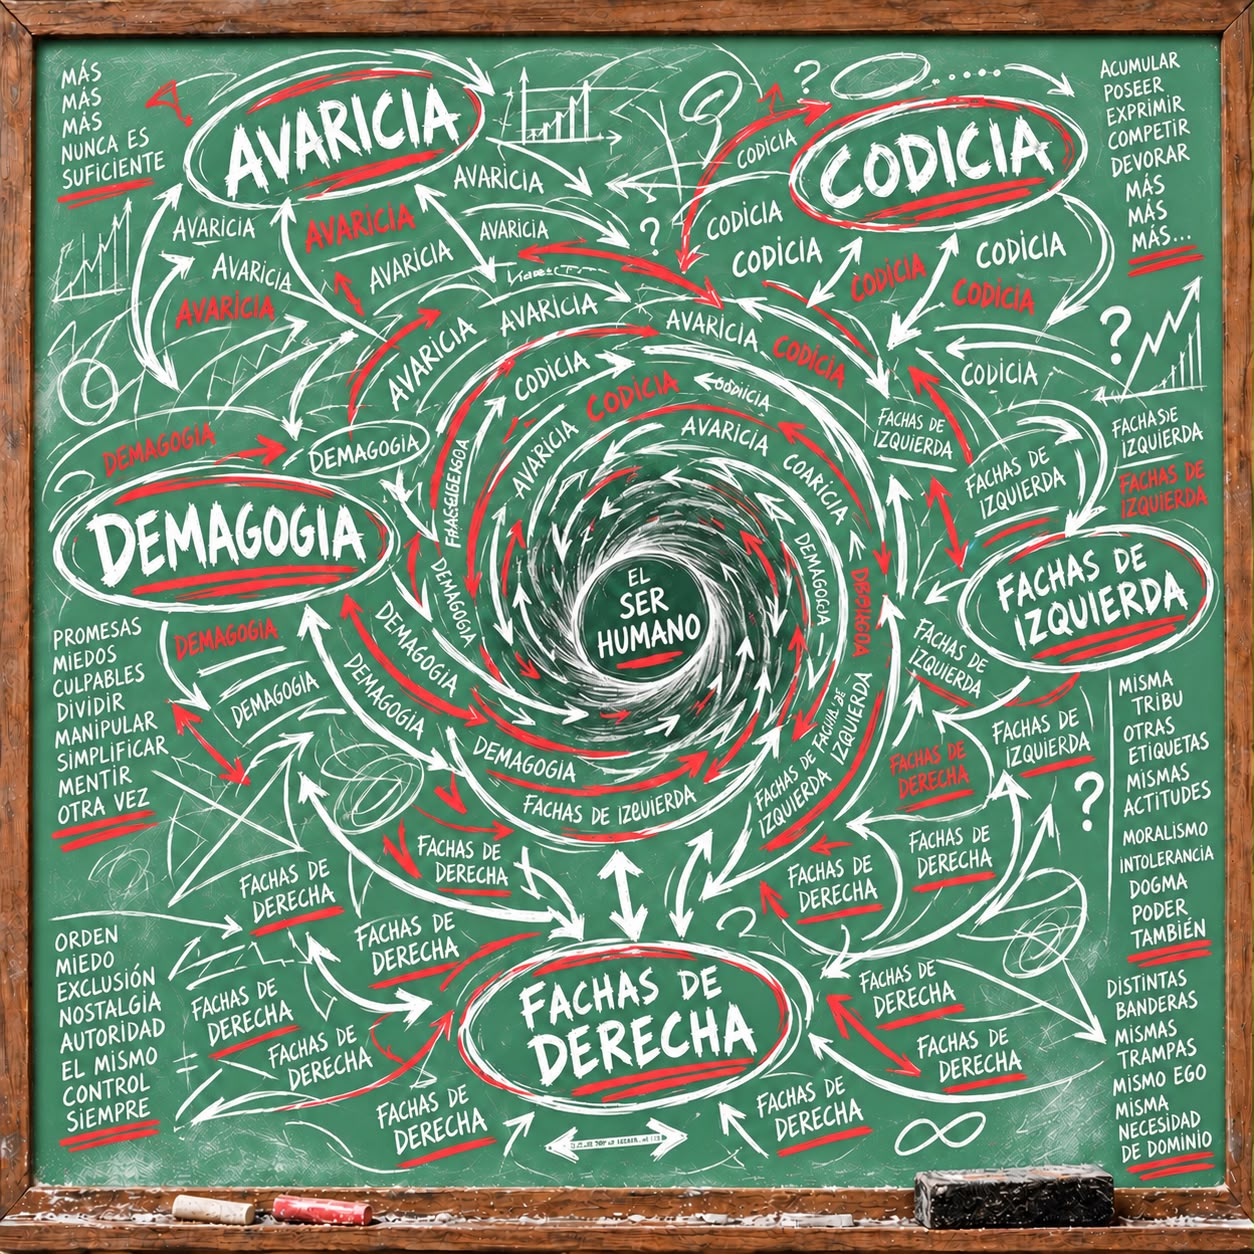 MÁS
MÁS
MÁS
NUNCA ES
SUFICIENTE
AVARICIA
CODICIA
ACUMULAR
POSEER
EXPRIMIR
COMPETIR
DEVORAR
MÁS
MÁS
MÁS...
?
CODICIA
AVARICIA
AVARICIA
AVARICIA
AVARICIA
AVARICIA
AVARICIA
AVARICIA
?
CODICIA
CODICIA
CODICIA
CODICIA
CODICIA
CODICIA
?
AVARICIA
AVARICIA
AVARICIA
CODICIA
CODICIA
CODICIA
AVARICIA
AVARICIA
COARICIA
DEMAGOGIA
DEMAGOGIA
DEMAGOGIA
PROMESAS
MIEDOS
CULPABLES
DIVIDIR
MANIPULAR
SIMPLIFICAR
MENTIR
OTRA VEZ
DEMAGOGIA
DEMAGOGIA
DEMAGOGIA
DEMAGOGIA
DEMAGOGIA
DEMAGOGIA
DEMAGOGIA
EL
SER
HUMANO
FACHAS DE
IZQUIERDA
FACHAS DE
IZQUIERDA
FACHASIE
IZQUIERDA
FACHAS DE
IZQUIERDA
FACHAS DE
IZQUIERDA
FACHAS DE
IZQUIERDA
FACHAS DE
IZQUIERDA
FACHAS DE
IZQUIERDA
MISMA
TRIBU
OTRAS
ETIQUETAS
MISMAS
ACTITUDES
?
MORALISMO
INTOLERANCIA
DOGMA
PODER
TAMBIÉN
DISTINTAS
BANDERAS
MISMAS
TRAMPAS
MISMO EGO
MISMA
NECESIDAD
DE DOMINIO
FACHAS DE
DERECHA
FACHAS DE
DERECHA
FACHAS DE
DERECHA
FACHAS DE
DERECHA
FACHAS DE
DERECHA
FACHAS DE
DERECHA
?
ORDEN
MIEDO
EXCLUSIÓN
NOSTALGIA
AUTORIDAD
EL MISMO
CONTROL
SIEMPRE
FACHAS DE
DERECHA
FACHAS DE
DERECHA
FACHAS DE
DERECHA
FACHAS DE
DERECHA
FACHAS DE
DERECHA
FACHAS DE
DERECHA
FACHAS DE
DERECHA
∞